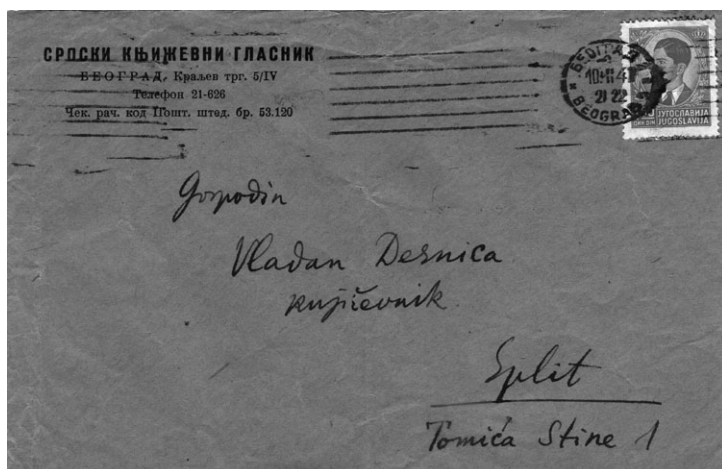 СРПСКИ КЊИЖЕВНИ ГЛАСНИК
БЕОГРАД, Краљев трг. 5/IV
Телефон 21-626
Чек. рач. код Пошт. штед. бр. 53.120
BEOGRAD
ЈУГОСЛАВИЈА
JUGOSLAVIJA
Gospodin
Vladan Desnica
književnik
Split
Tomića Stine 1